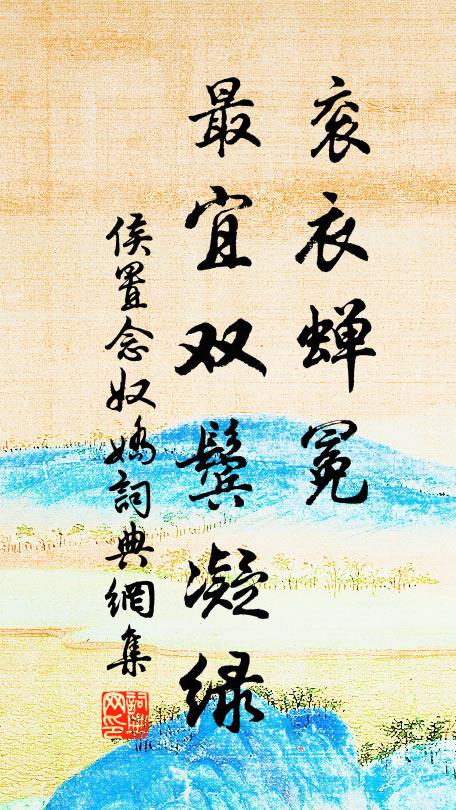 衮衣蝉冕
最宜双鬓凝绿
侯置念奴娇詞典網集